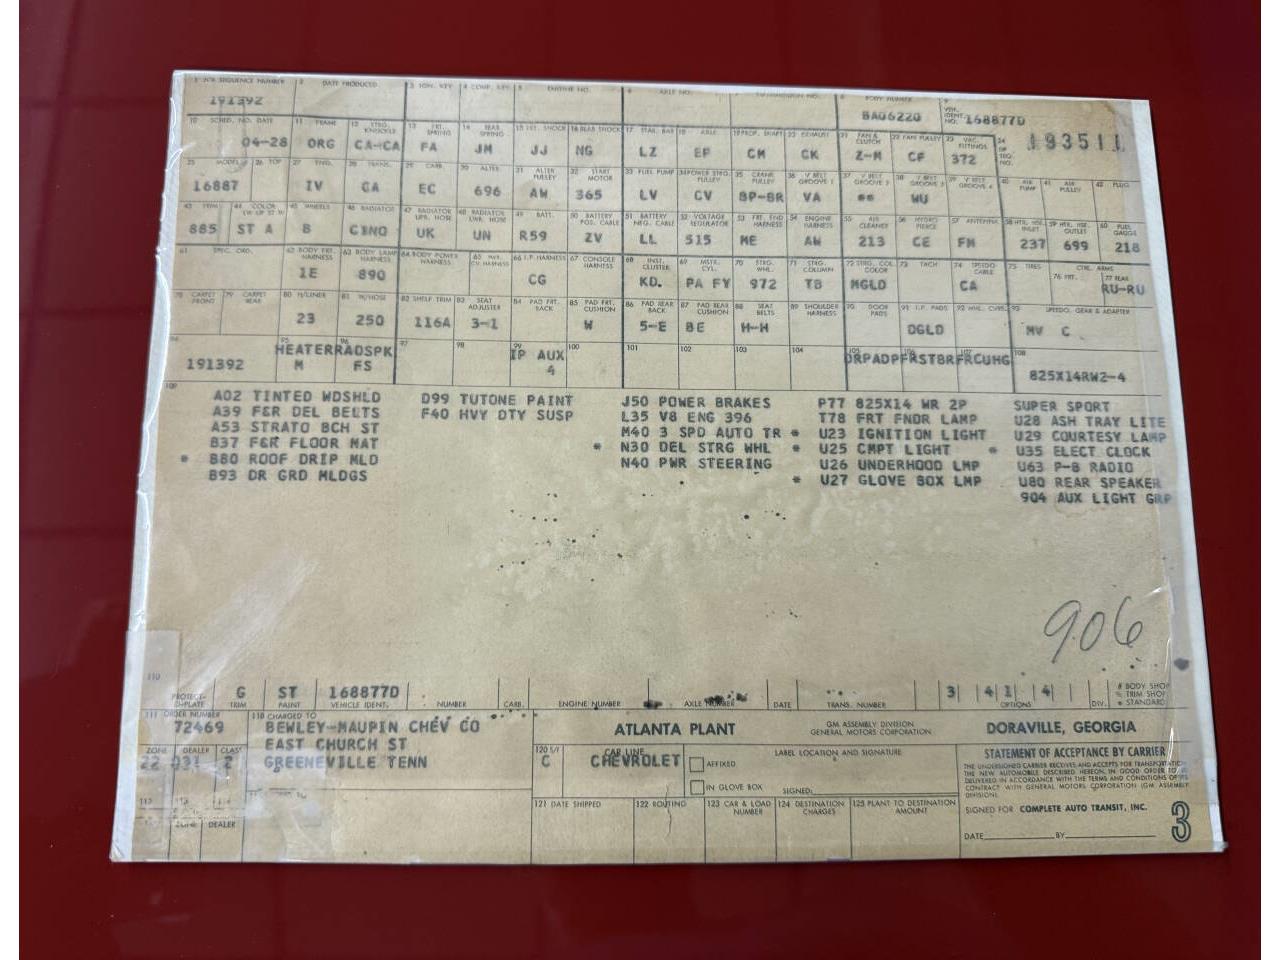 2 DATE PRODUCED 3 IGN. KEY 4 COMP. KEY 5 ENGINE NO. 6 AXLE NO. 8 BODY NUMBER 9 VEH. IDENT. NO.
191392 BA06220 168877D
10 SCHED. NO. DATE 11 FRAME 12 STRG. KNUCKLE 13 FRT. SPRING 14 REAR SPRING 15 FRT. SHOCK 16 REAR SHOCK 17 STAB. BAR 18 AXLE 19 PROP. SHAFT 20 EXHAUST 21 FAN & CLUTCH 22 FAN PULLEY 23 VAC. FITTINGS 24
04-28 ORG CA-CA FA JM JJ NG LZ EP CM CK Z-M CF 372
25 MODEL 26 TOP 27 ENG. 28 TRANS. 29 CARB. 30 ALTER. 31 ALTER PULLEY 32 START MOTOR 33 FUEL PUMP 34 POWER STRG. PULLEY 35 CRANK PULLEY 36 V BELT GROOVE 1 37 V BELT GROOVE 2 38 V BELT GROOVE 3 39 V BELT GROOVE 4 40 AIR PUMP 41 AIR PULLEY 42 PLUG
16887 IV CA EC 696 AW 365 LV CV BP-BR VA ** WU
43 TRIM 44 COLOR LW UP ST W 45 WHEELS 46 RADIATOR 47 RADIATOR UPR. HOSE 48 RADIATOR LWR. HOSE 49 BATT. 50 BATTERY POS. CABLE 51 BATTERY NEG. CABLE 52 VOLTAGE REGULATOR 53 FRT. END HARNESS 54 ENGINE HARNESS 55 AIR CLEANER 56 HYDRO PIERCE 57 ANTENNA 58 HTR. HSE. INLET 59 HTR. HSE. OUTLET 60 FUEL GAUGE
885 ST A B UK UN R59 ZV LL 515 ME AW 213 CE FM 237 699 218
61 SPEC. ORD. 62 BODY FRT. HARNESS 63 BODY LAMP HARNESS 64 BODY POWER HARNESS 66 I.P. HARNESS 67 CONSOLE HARNESS 68 INST. CLUSTER 69 MSTR. CYL. 70 STRG. WHL. 71 STRG. COLUMN 72 STRG. COL. COLOR 73 TACH 74 SPEEDO CABLE 75 TIRES CTRL. ARMS 76 FRT. 77 REAR
1E 890 CG KD. PA FY 972 TB MGLD CA RU-RU
78 CARPET FRONT 79 CARPET REAR 80 H/LINER 81 W/HOSE 82 SHELF TRIM 83 SEAT ADJUSTER 84 PAD FRT. BACK 85 PAD FRT. CUSHION 86 PAD REAR BACK 87 PAD REAR CUSHION 88 SEAT BELTS 89 SHOULDER HARNESS 90 DOOR PADS 91 I.P. PADS 93 SPEEDO. GEAR & ADAPTER
23 250 116A 3-1 W 5-E BE H-H DGLD MV C
94 95 96 97 98 99 100 101 102 103 104 105 106 107 108
191392 HEATER M RADSPK FS IP AUX 4 DRPAD PFRSTBR FRCUHG 825X14RW2-4
109
A02 TINTED WDSHLD
A39 F&R DEL BELTS
A53 STRATO BCH ST
B37 F&R FLOOR MAT
* B80 ROOF DRIP MLD
B93 DR GRD MLDGS
D99 TUTONE PAINT
F40 HVY DTY SUSP
J50 POWER BRAKES
L35 V8 ENG 396
M40 3 SPD AUTO TR
* N30 DEL STRG WHL
N40 PWR STEERING
P77 825X14 WR 2P
T78 FRT FNDR LAMP
* U23 IGNITION LIGHT
* U25 CMPT LIGHT
U26 UNDERHOOD LMP
* U27 GLOVE BOX LMP
SUPER SPORT
U28 ASH TRAY LITE
U29 COURTESY LAMP
* U35 ELECT CLOCK
U63 P-B RADIO
U80 REAR SPEAKER
904 AUX LIGHT GRP
906
110
G ST 168877D 3 41 4
TRIM PAINT VEHICLE IDENT. NUMBER CARB. ENGINE NUMBER AXLE NUMBER DATE TRANS. NUMBER OPTIONS DIV.
# BODY SHOP
% TRIM SHOP
* STANDARD
111 ORDER NUMBER
72469
ZONE DEALER CLASS
22 031 2
ZONE DEALER
118 CHARGED TO
BEWLEY-MAUPIN CHEV CO
EAST CHURCH ST
GREENEVILLE TENN
ATLANTA PLANT
GM ASSEMBLY DIVISION
GENERAL MOTORS CORPORATION
DORAVILLE, GEORGIA
120 S/T
C
CAR LINE
CHEVROLET
LABEL LOCATION AND SIGNATURE
AFFIXED
IN GLOVE BOX SIGNED:
121 DATE SHIPPED 122 ROUTING 123 CAR & LOAD NUMBER 124 DESTINATION CHARGES 125 PLANT TO DESTINATION AMOUNT
STATEMENT OF ACCEPTANCE BY CARRIER
THE UNDERSIGNED CARRIER RECEIVES AND ACCEPTS FOR TRANSPORTATION
THE NEW AUTOMOBILE DESCRIBED HEREON, IN GOOD ORDER TO BE
DELIVERED IN ACCORDANCE WITH THE TERMS AND CONDITIONS OF ITS
CONTRACT WITH GENERAL MOTORS CORPORATION (GM ASSEMBLY
DIVISION).
SIGNED FOR COMPLETE AUTO TRANSIT, INC.
DATE BY
3